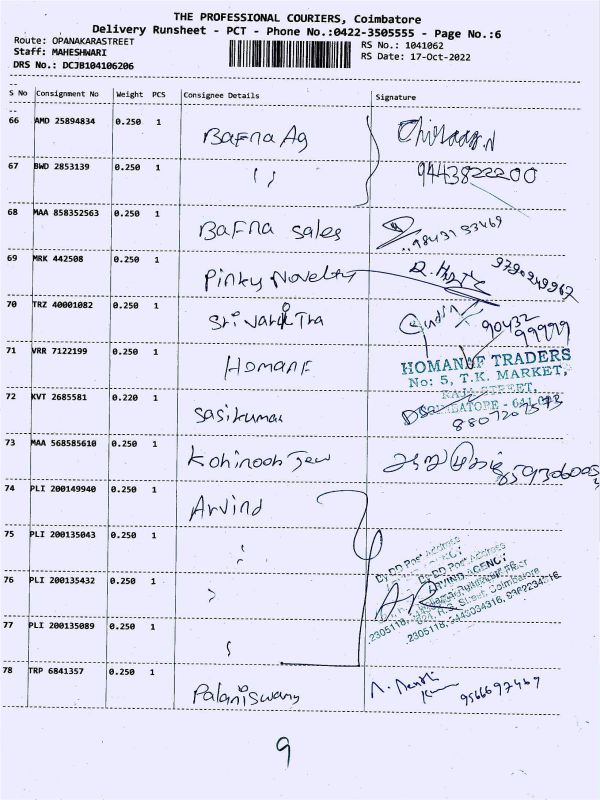 THE PROFESSIONAL COURIERS, Coimbatore
Delivery Runsheet - PCT - Phone No.:0422-3505555 - Page No.:6
Route: OPANAKARASTREET
RS No.: 1041062
Staff: MAHESHWARI
RS Date: 17-Oct-2022
DRS No.: DCJB104106206
S No Consignment No Weight PCS Consignee Details Signature
66 AMD 25894834 0.250 1 Bafna Ag
67 BWD 2853139 0.250 1 " 9443822200
68 MAA 858352563 0.250 1 Bafna sales
69 MRK 442508 0.250 1 Pinky Novelty
70 TRZ 40001082 0.250 1 90432
99999
71 VRR 7122199 0.250 1 Homane
HOMANAF TRADERS
No: 5, T.K. MARKET,
RAJA STREET,
72 KVT 2685581 0.220 1 Sasikumar
73 MAA 568585610 0.250 1 Kohinoor Jew
74 PLI 200149940 0.250 1 Arvind
75 PLI 200135043 0.250 1
76 PLI 200135432 0.250 1
ARVIND AGENCY
77 PLI 200135089 0.250 1
78 TRP 6841357 0.250 1 Palaniswamy 9566697467
9